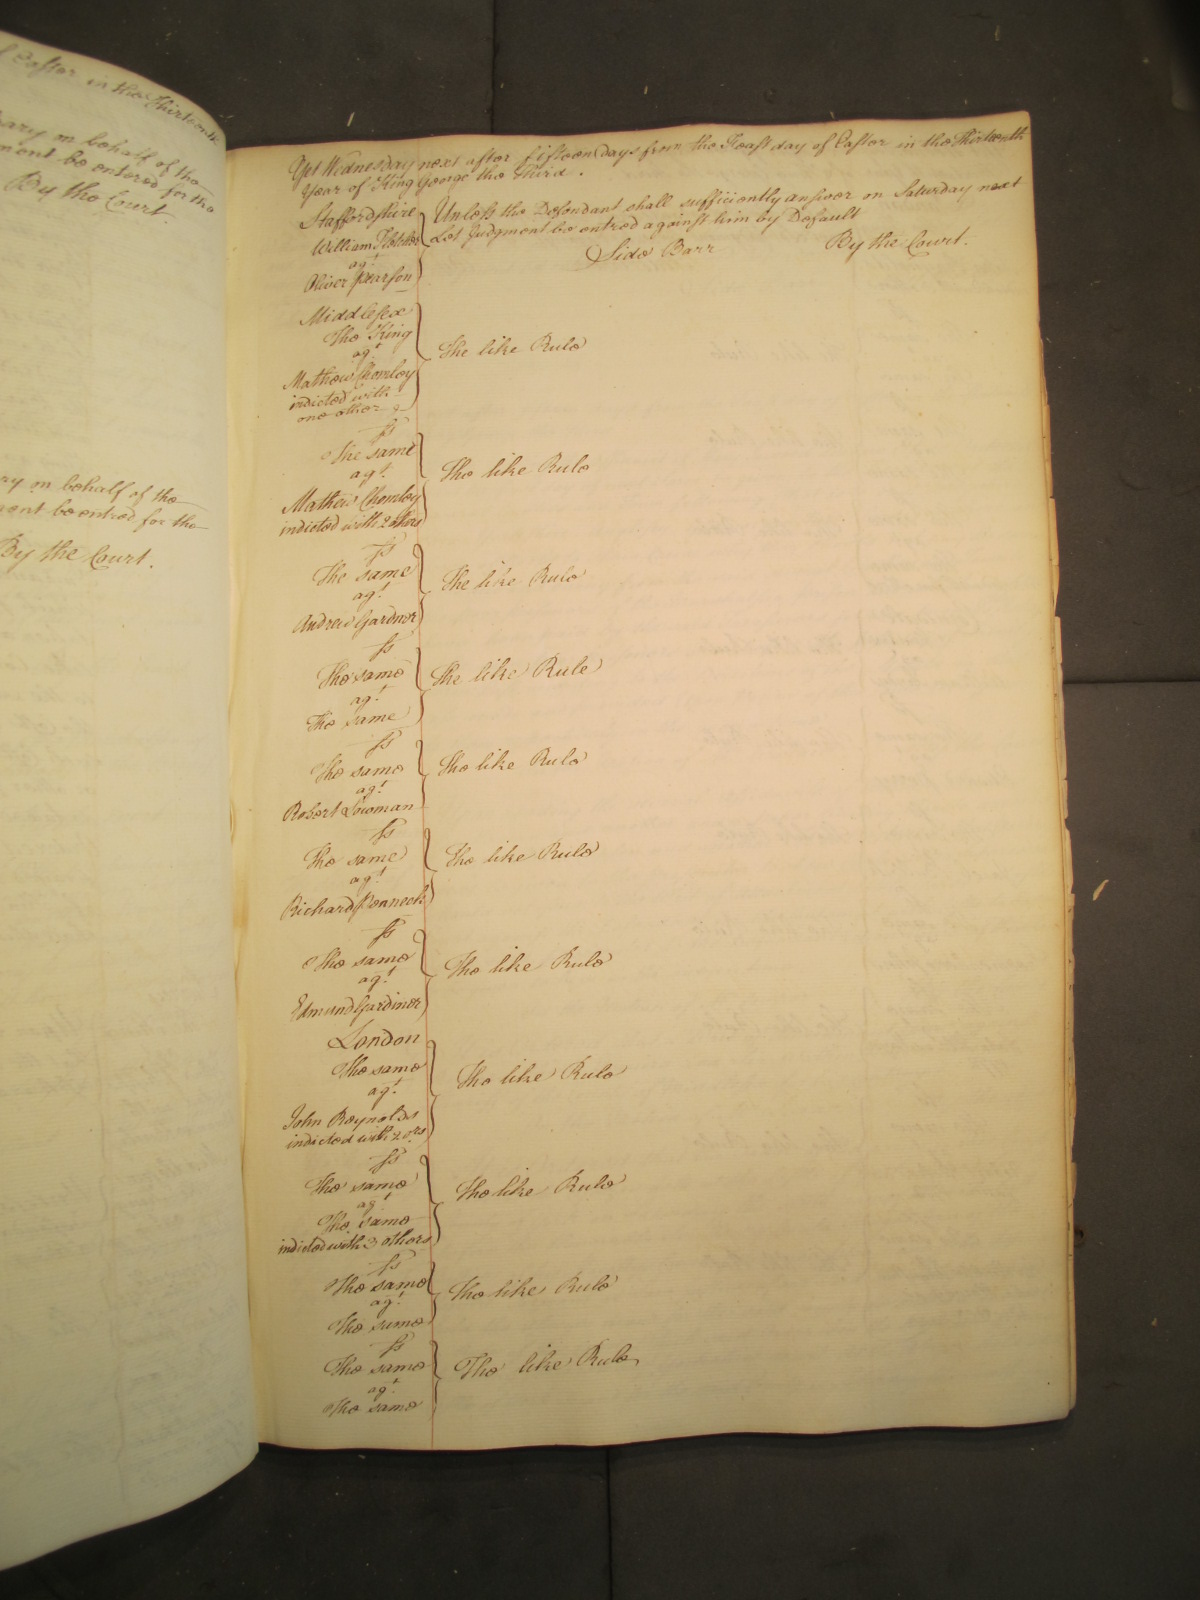 of Easter in the Thirteenth
on behalf of the
ment be entered for the
By the Court.
on behalf of the
be entred for the
By the Court.
Yet Wednesday next after fifteen days from the Feast day of Easter in the Thirteenth
Year of King George the Third.
Staffordshire
William
agt
Oliver Pearson
Unless the Defendant shall sufficiently answer on Saturday next
Let Judgment be entred against him by Default
Side Barr By the Court.
Middlesex
The King
agt
Mathew Chomley
indicted with
one other
The like Rule
ss
The same
agt
Mathew Chomley
indicted with 2 others
The like Rule
ss
The same
agt
Andrew Gardner
The like Rule
ss
The same
agt
The same
The like Rule
ss
The same
agt
Robert Lowman
The like Rule
ss
The same
agt
Richard Penneck
The like Rule
ss
The same
agt
Edmund Gardiner
The like Rule
London
The same
agt
John Reynolds
indicted with 2 ors
The like Rule
ss
The same
agt
The same
indicted with 3 others
The like Rule
ss
The same
agt
The same
The like Rule
ss
The same
agt
The same
The like Rule